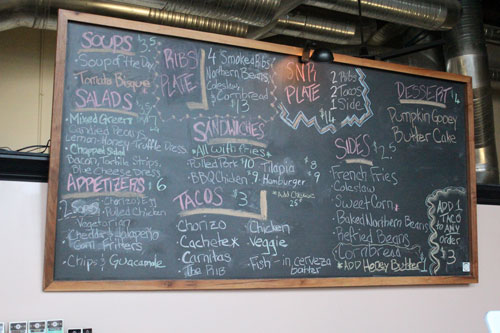 SOUPS
Soup of the Day
Tomato Bisque
SALADS
Mixed Greens
Candied Pecans
Lemon-Honey Truffle Dress
Chopped Salad
Bacon, Tortilla Strips,
Blue Cheese Dress
APPETIZERS $6
2
Chorizo Egg
Pulled Chicken
Vegetarian
Cheddar & Jalapeño
Corn Fritters
Chips & Guacamole
RIBS
PLATE
4 Smoked Ribs
Northern Beans
Coleslaw
& Cornbread
$13
SANDWICHES
*All with fries*
Pulled Pork $10
BBQ Chicken $9
Tilapia $8
Hamburger $9
*ADD Cheese
TACOS $3
Chorizo
Cachetex
Carnitas
The Pub
Chicken
Veggie
Fish - in cerveza
batter
PLATE
2 Ribs
2 Tacos
1 Side
DESSERT
Pumpkin Gooey
Butter Cake
SIDES $2.5
French Fries
Coleslaw
Sweet Corn
Baked Northern Beans
Refried Beans
Cornbread
*ADD Honey Butter $1
ADD 1
TACO
to ANY
order
$3